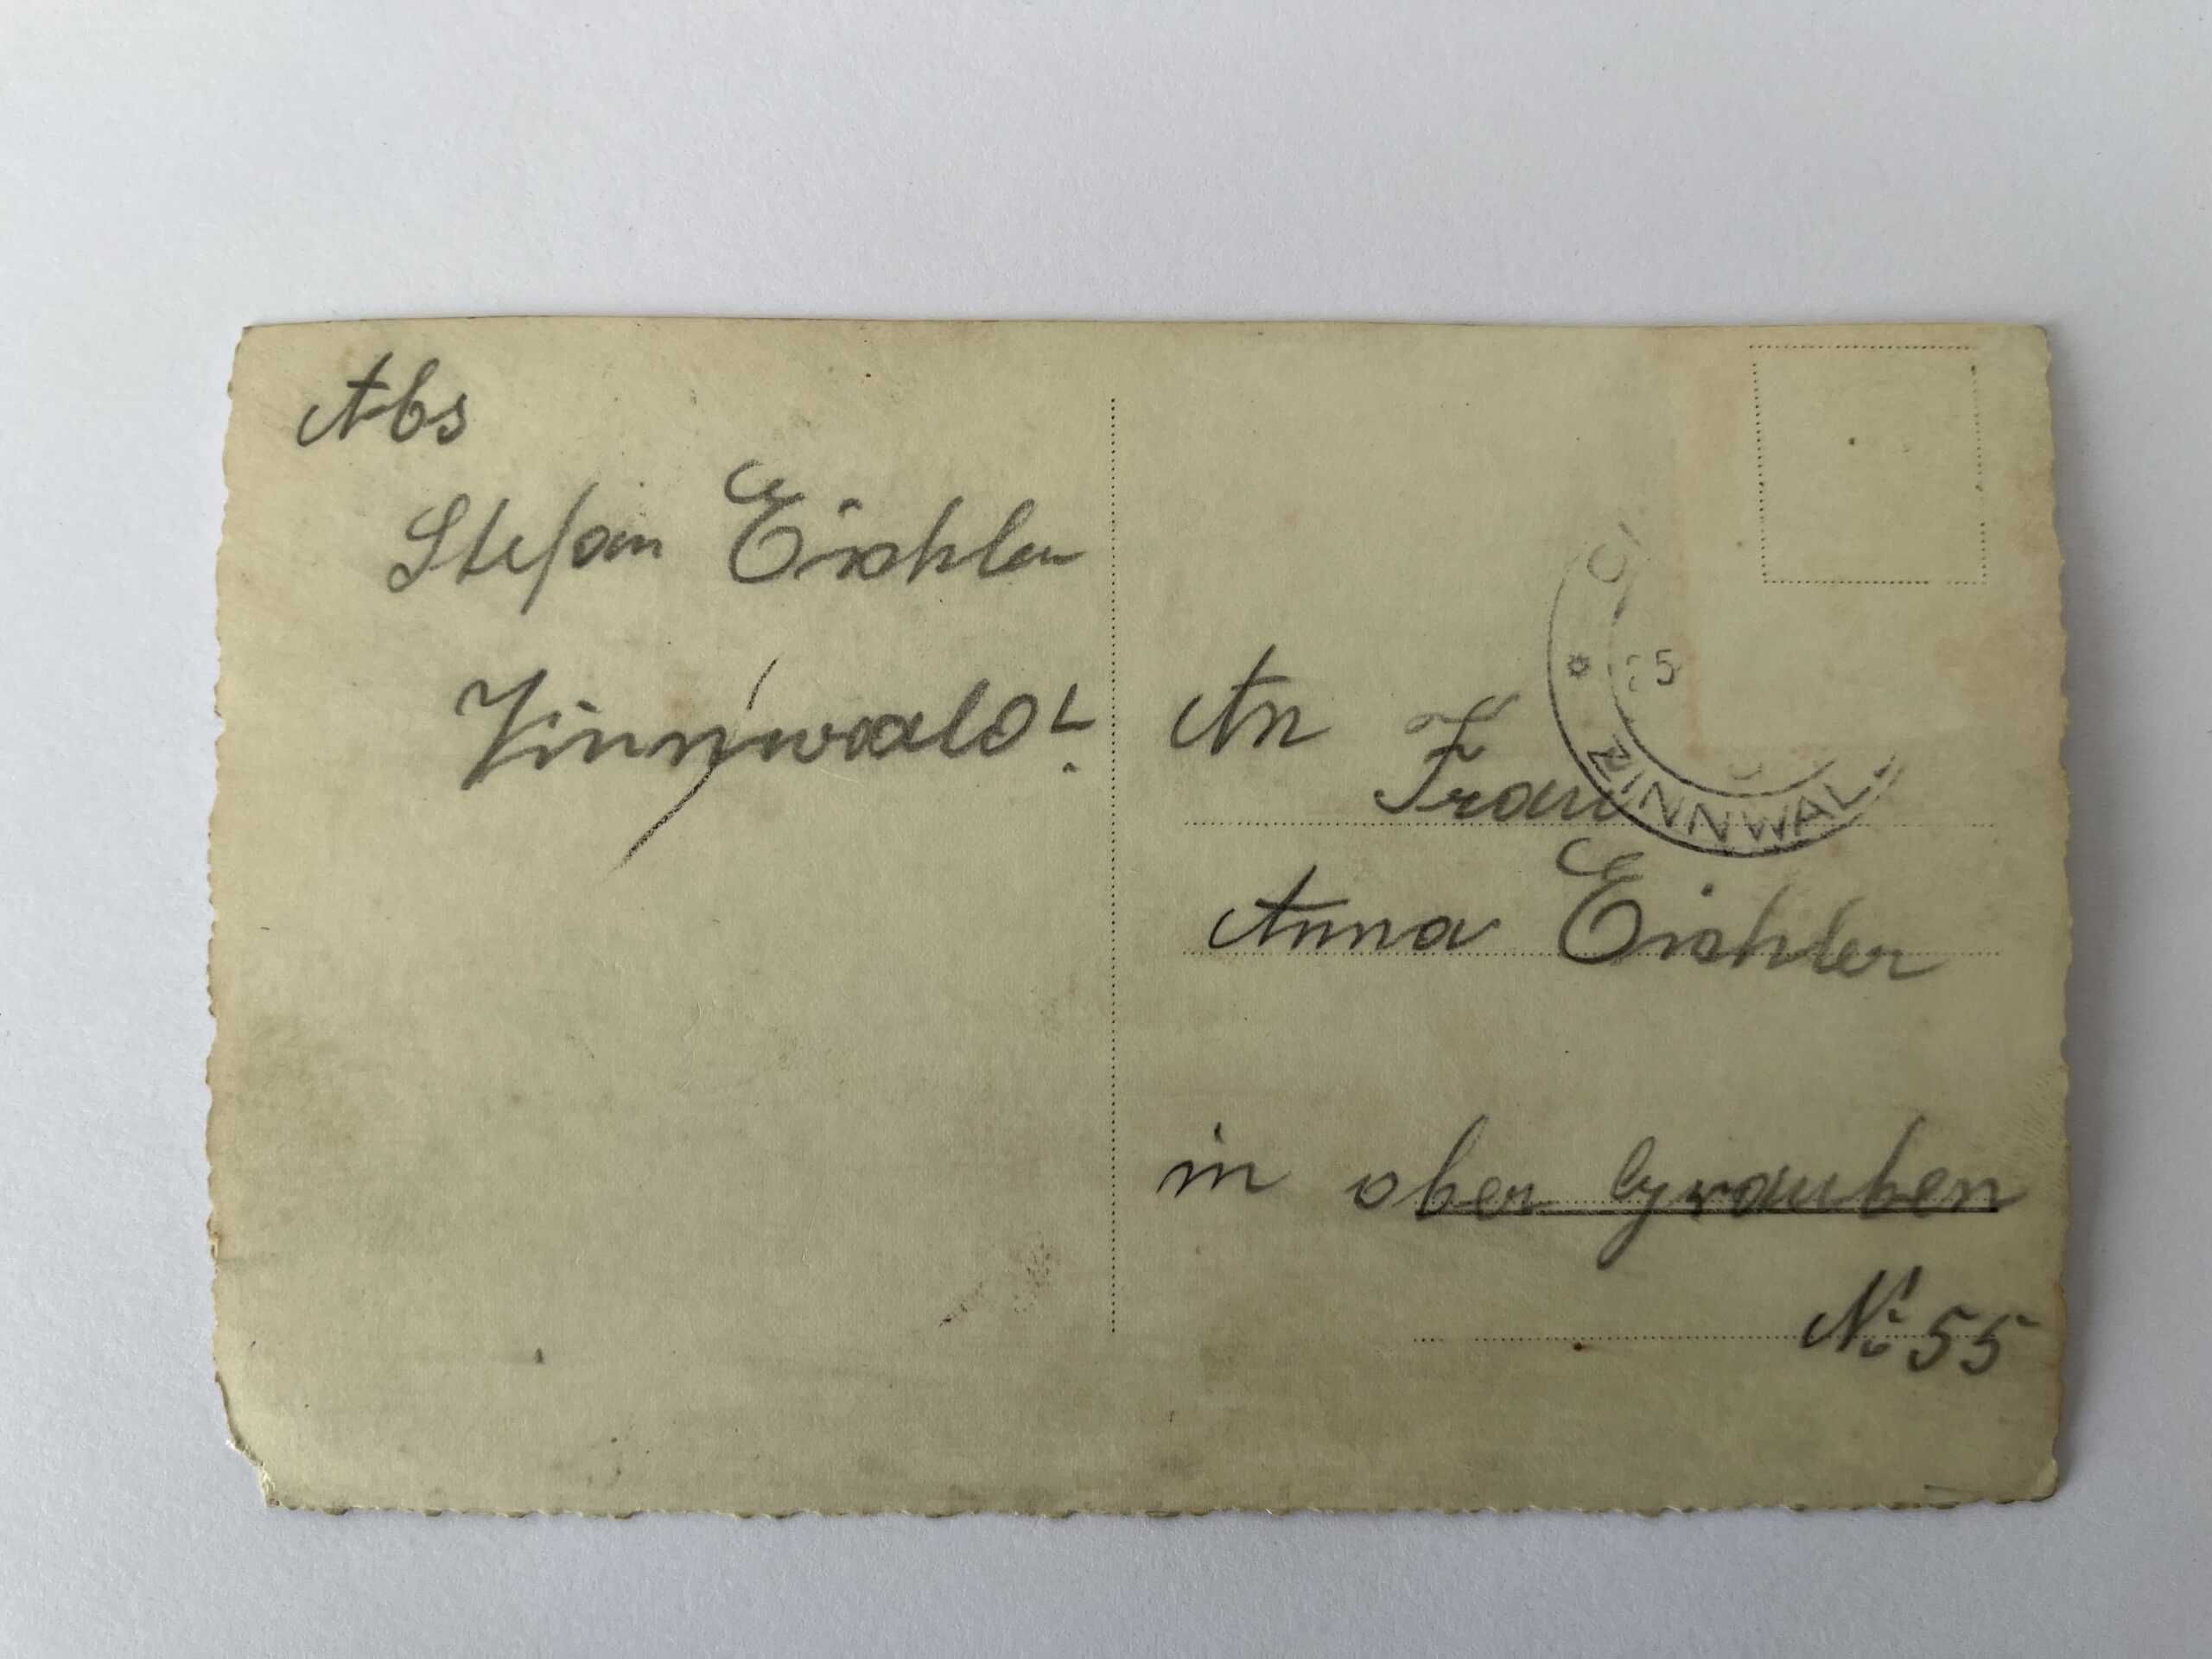 Abs
Stefan Eichler
Zinnwald
An Frau
Anna Eichler
in ober Grauben
No 55
25
ZINNWAL